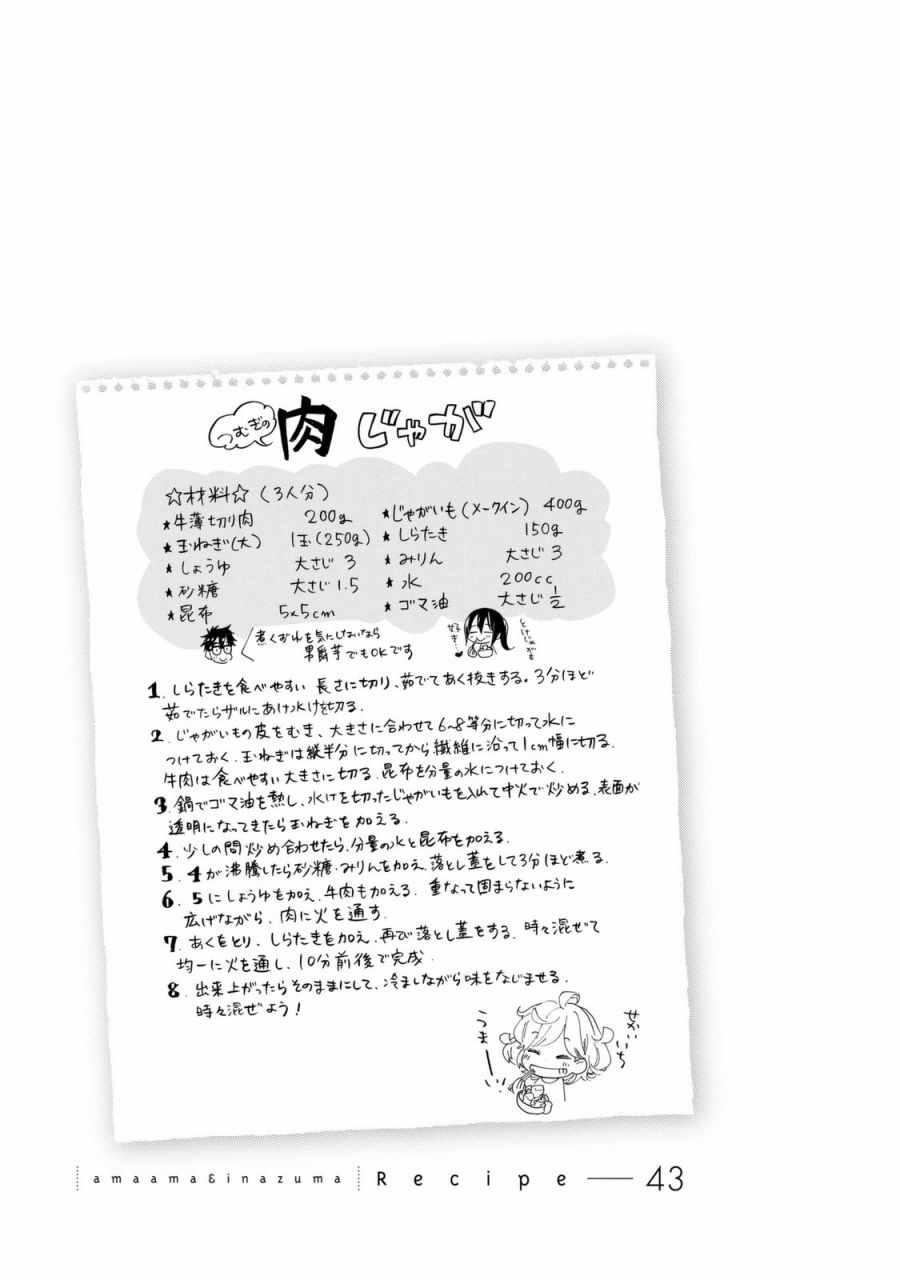 つむぎの
肉じゃが
☆材料☆(3人分)
★牛薄切り肉 200g
★玉ねぎ(大) 1玉(250g)
★しょうゆ 大さじ 3
★砂糖 大さじ 1.5
★昆布 5×5cm
★じゃがいも(メークイン) 400g
★しらたき 150g
★みりん 大さじ 3
★水 200cc
★ゴマ油 大さじ 1/2
煮くずれを気にしないなら
男爵芋でもOKです
とけじゃがも
好き
1. しらたきを食べやすい長さに切り、茹でてあく抜きする。3分ほど
茹でたらザルにあけ水けを切る。
2. じゃがいもの皮をむき、大きさに合わせて6~8等分に切って水に
つけておく。玉ねぎは縦半分に切ってから繊維に沿って1cm幅に切る。
牛肉は食べやすい大きさに切る。昆布を分量の水につけておく。
3. 鍋でゴマ油を熱し、水けを切ったじゃがいもを入れて中火で炒める。表面が
透明になってきたら玉ねぎを加える。
4. 少しの間炒め合わせたら、分量の水と昆布を加える。
5. 4が沸騰したら砂糖・みりんを加え、落とし蓋をして3分ほど煮る。
6. 5にしょうゆを加え、牛肉も加える。重なって固まらないように
広げながら、肉に火を通す。
7. あくをとり、しらたきを加え、再び落とし蓋をする。時々混ぜて
均一に火を通し、10分前後で完成。
8. 出来上がったらそのままにして、冷ましながら味をなじませる。
時々混ぜよう!
せかいいち
うまーーい
amaama&inazuma Recipe — 43